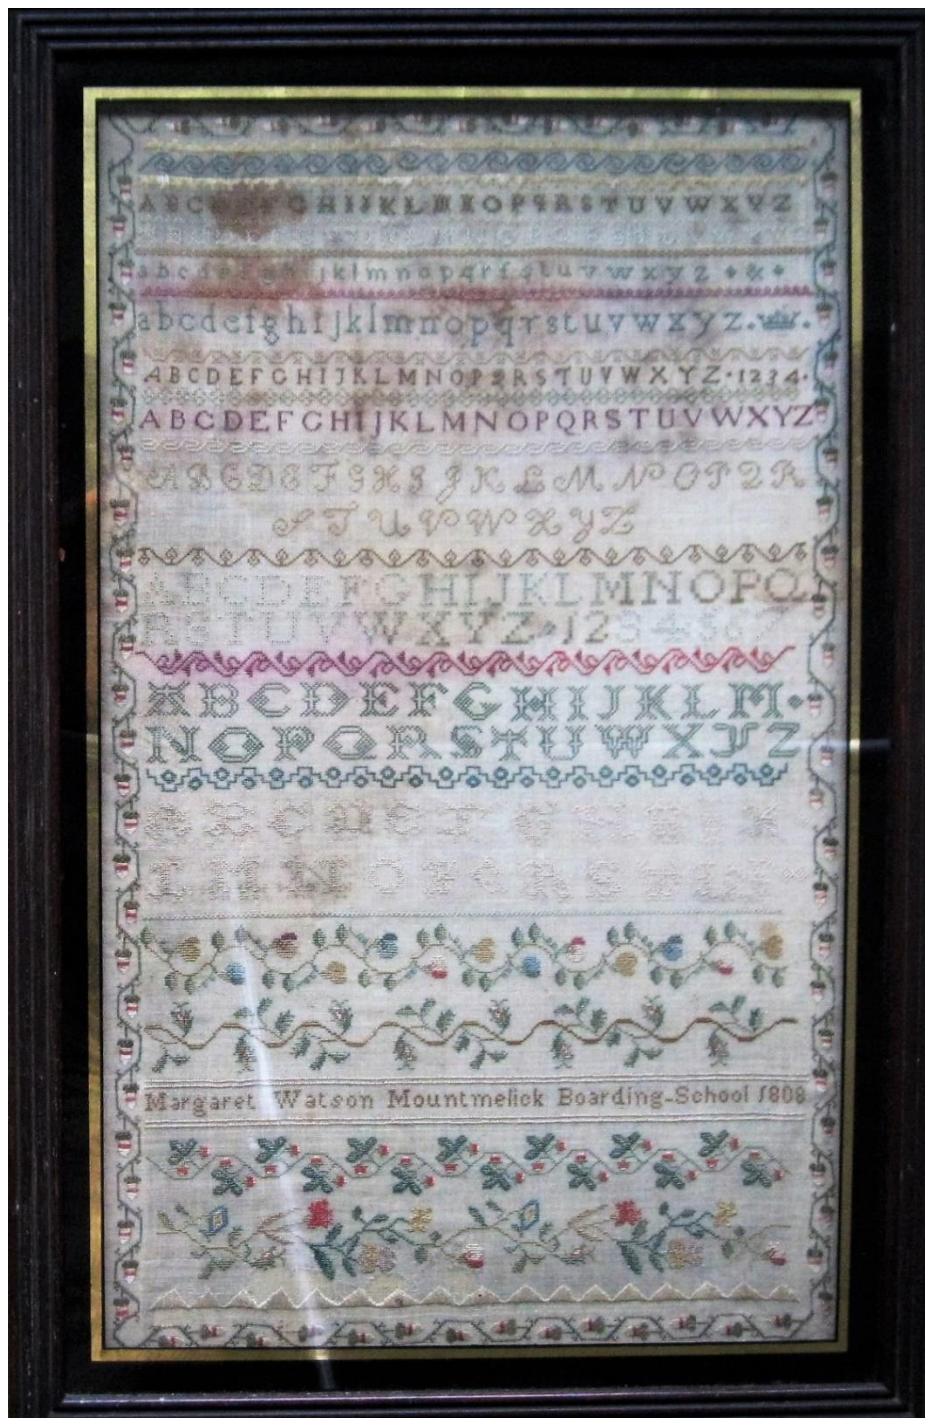 A B C D E F G H I J K L M N O P Q R S T U V W X Y Z
a b c d e f g h i j k l m n o p q r s t u v w x y z & 
a b c d e f g h i j k l m n o p q r s t u v w x y z
A B C D E F G H I J K L M N O P Q R S T U V W X Y Z · 1 2 3 4 ·
A B C D E F G H I J K L M N O P Q R S T U V W X Y Z
A B C D E F G H I J K L M N O P Q R
S T U V W X Y Z
A B C D E F G H I J K L M N O P Q
R S T U V W X Y Z · 1 2 3 4 5 6 7
A B C D E F G H I J K L M ·
N O P Q R S T U W X Y Z
A B C D E F G H I K
L M N O P Q R S T U
Margaret Watson Mountmelick Boarding-School 1808